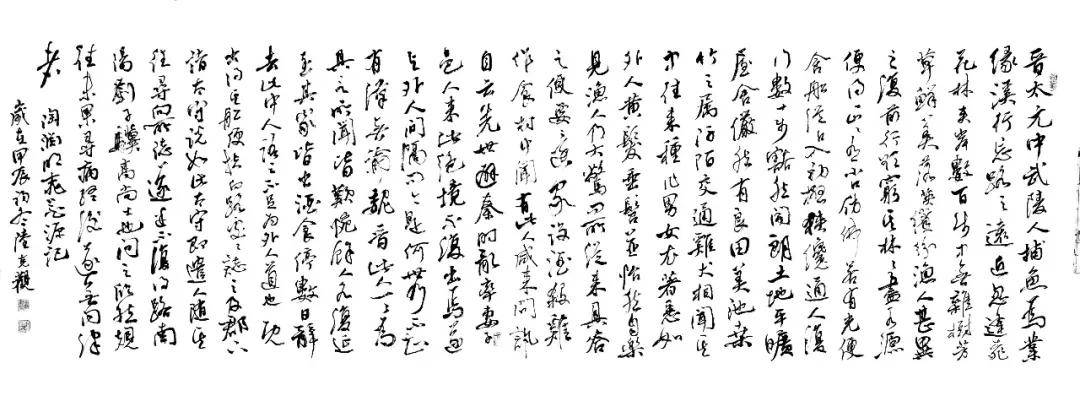 晉太元中武陵人捕魚為業
緣溪行忘路之遠近忽逢桃
花林夾岸數百步中無雜樹芳
草鮮美落英繽紛漁人甚異
之復前行欲窮其林林盡水源
便得一山山有小口仿佛若有光便
舍船從口入初極狹纔通人復
行數十步豁然開朗土地平曠
屋舍儼然有良田美池桑
竹之屬阡陌交通雞犬相聞其
中往來種作男女衣著悉如
外人黃髮垂髫並怡然自樂
見漁人乃大驚問所從來具答
之便要還家設酒殺雞
作食村中聞有此人咸來問訊
自云先世避秦時亂率妻子
邑人來此絕境不復出焉遂
與外人間隔問今是何世乃不知
有漢無論魏晉此人一一為
具言所聞皆歎惋餘人各復延
至其家皆出酒食停數日辭
去此中人語云不足為外人道也既
出得其船便扶向路處處誌之及郡下
詣太守說如此太守即遣人隨其
往尋向所誌遂迷不復得路南
陽劉子驥高尚士也聞之欣然規
往未果尋病終後遂無問津
者
陶淵明桃花源記
歲在甲辰初冬陸